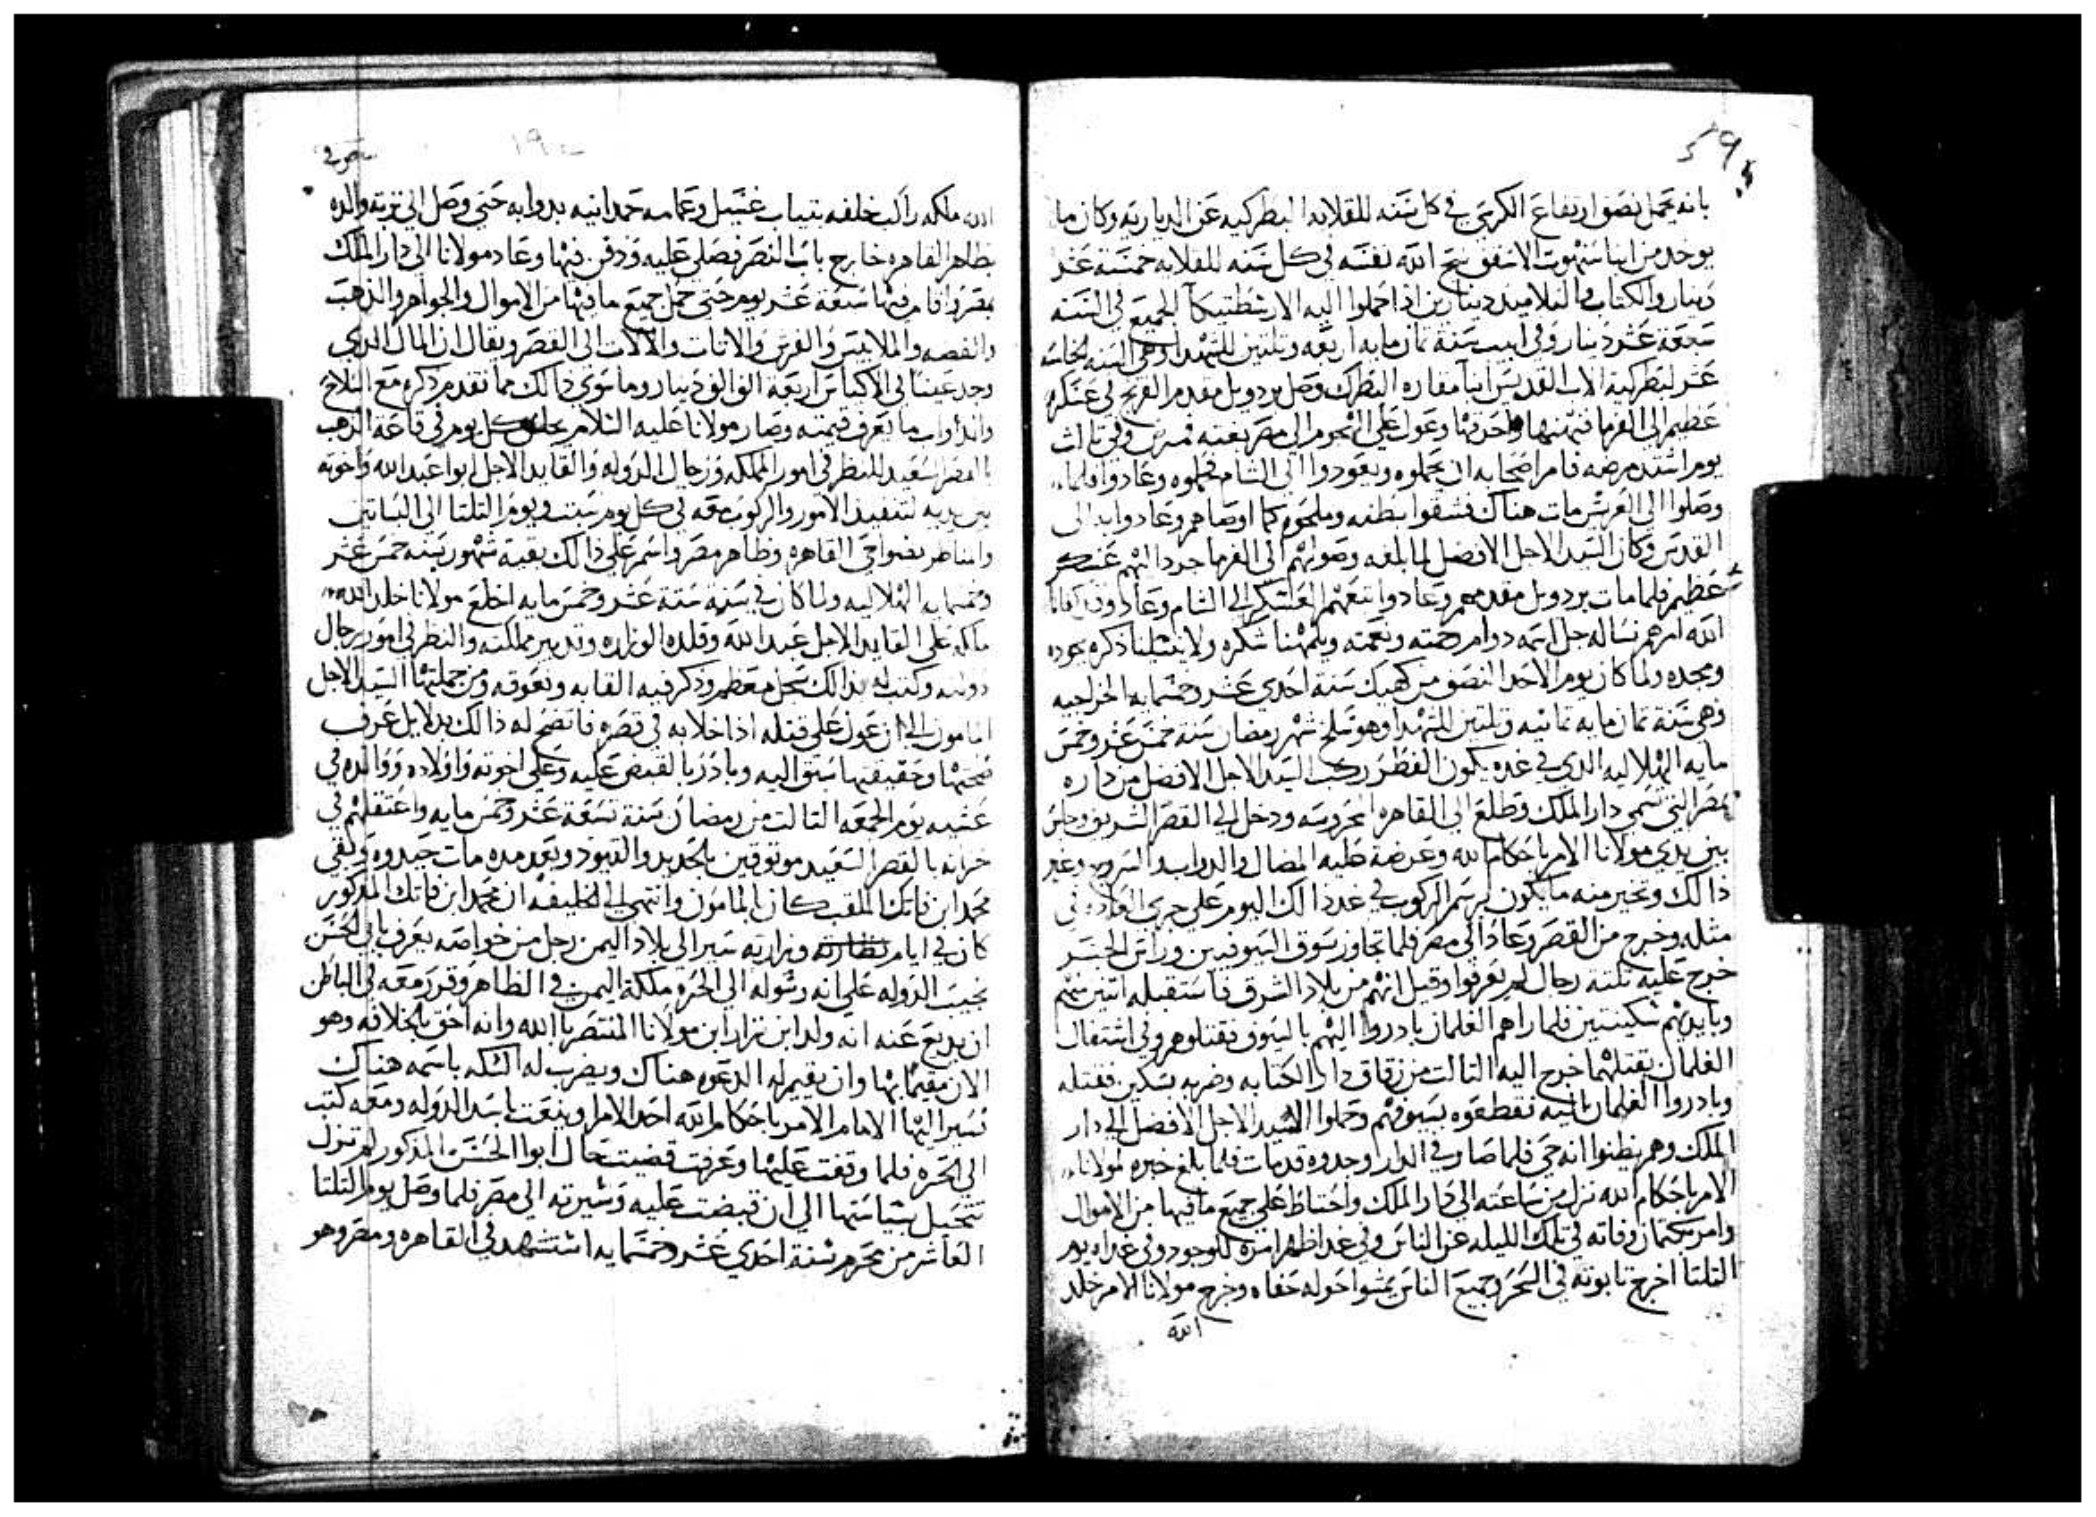 بانه يحمل نصف ارتفاع الكرسي في كل سنه للقلايه البطركيه عن الدياريه وكان ما
يوخد من انبا سنهوت الاسقف نيح الله نفسه في كل سنه للقلايه خمسة عشر
دينار والكتاب والتلاميد دينارين اذا حملوا اليه الارسطتيكا الجميع في السنه
سبعة عشر دينار وفي ابيب سنة تمان مايه اربعه وتلتين للشهدا وهي السنه الخامسه
عشر لبطركية الاب القديس انبا مقاره البطرك وصل بردويل مقدم الفرنج في عسكر
عظيم الى الفرما فنهبها واحرقها وعول على الهجوم الى مصر بغته فمرض وفي تالت
يوم اشتد مرضه فامر اصحابه ان يحملوه ويعودوا الى الشام فحملوه وعادوا فلما
وصلوا الى العريش مات هناك فشقوا بطنه وملحوه كما اوصاهم وعادوا به الى
القدس وكان السيد الاجل الافضل لما بلغه وصولهم الى الفرما جرد اليهم عسكر
عظيم فلما مات بردويل مقدمهم وعادوا تبعهم العسكر الى الشام وعادوا
الله امرهم نساله جل اسمه دوام رحمته ونعمته ويلهمنا شكره ولا ينسينا ذكره بجوده
ومجده ولما كان يوم الاحد النصف من كيهك سنة احدي عشر وخمسمايه الخراجيه
وهي سنة تمان مايه تمانيه وتلتين للشهدا وهو سلخ شهر رمضان سنة خمس عشر وخمس
مايه الهلاليه الدي في غده يكون الفطر ركب السيد الاجل الافضل من داره
بمصر التي تسمي دار الملك وطلع الى القاهره المحروسه ودخل الى القصر الشريف وجلس
بين يدي مولانا الامر باحكام الله وعرضة عليه المضال والدواب والسروج وغير
دالك وتخير منه ما يكون لرسم الركوب في غد دالك اليوم على جري العاده في
مثله وخرج من القصر وعاد الى مصر فلما تجاوز سوق السيوفيين وراس الجسر
خرج عليه تلته رجال لم يعرفوا وقيل انهم من بلاد الشرق فاستقبله اتنين منهم
وبايديهم سكينتين فلما راهم الغلمان بادروا اليهم بالسيوف فقتلوهم وفي اشتغال
الغلمان بقتلهما خرج اليه التالت من زقاق دار الكتابه وضربه بسكين فقتله
وبادروا الغلمان اليه فقطعوه بسيوفهم وحملوا السيد الاجل الافضل الى دار
الملك وهم يظنوا انه حي فلما صار في الدار وجدوه قد مات فلما بلغ خبره لمولانا
الامر باحكام الله نزل من ساعته الى دار الملك واحتاط على جميع ما فيها من الاموال
وامر بكتمان وفاته في تلك الليله عن الناس وفي غد اظهر امره للوجود وفي غداه يوم
التلتا اخرج تابوته في السحر وجميع الناس يمشوا حوله حفاه وخرج مولانا الامر خلد
الله
الله ملكه راكب خلفه بتياب غسيل وعمامه حمدانيه بدوابه حتي وصل الي تربة والده
بظاهر القاهره خارج باب النصر فصلي عليه ودفن فيها وعاد مولانا الى دار الملك
بمصر واقام فيها سبعة عشر يوم حتي حمل جميع ما فيها من الاموال والجواهر والدهب
والفضه والملابس والفرش والاتات والالات الى القصر ويقال ان المال الدي
وجد عينا في الاكياس اربعة الف الف دينار وما سوي دالك مما تقدم دكره مع السلاح
والدواب ما يعرف قيمته وصار مولانا عليه السلام يجلس كل يوم في قاعة الدهب
بالقصر السعيد للنظر في امور المملكه ورجال الدوله والقايد الاجل ابوا عبد الله واخوته
بين يديه لتنفيد الامور والركوب معه في كل يوم سبت ويوم التلتا الى البساتين
والمناظر بضواحي القاهره وظاهر مصر واستمر على دالك بقية شهور سنة خمس عشر
وخمسمايه الهلاليه ولما كان في سنة ستة عشر وخمس مايه اخلع مولانا خلد الله
ملكه علي القايد الاجل عبد الله وقلده الوزاره وتدبير مملكته والنظر في امور رجال
دولته وكتب له بدالك سجل معظم ودكر فيه القابه ونعوته ومن جملتها السيد الاجل
المامون الى ان عول علي قتله ادا خلا به في قصره فاتضح له دالك بدلايل عرف
صحتها وحقيقتها سبق اليه وبادر بالقبض عليه وعلي اخوته واولاده ووالده في
عشية يوم الجمعه التالت من رمضان سنة تسعة عشر وخمس مايه واعتقلهم في
خزانه بالقصر السعيد موتوقين بالحديد والقيود وبعد مده مات حيدره وبقي
محمد ابن فاتك الملقب كان المامون وانتهي الى الخليفه ان محمد ابن فاتك المدكور
كان في ايام وزارته سير الى بلاد اليمن رجل من خواصه يعرف بابي الحسن
نجيب الدوله علي انه رسوله الي الحره ملكة اليمن في الظاهر وقرر معه في الباطن
ان يديع عنه انه ولد ابن نزار ابن مولانا المنتصر بالله وانه احق بالخلافه وهو
الان مقيما بها وان يقيم له الدعوه هناك ويضرب له السكه باسمه هناك
فسير اليها الامام الامر باحكام الله احد الامرا وينعت باسد الدوله ومعه كتب
الى الحره فلما وقفت عليها وعرفت قضيت حال ابوا الحسن المدكور لم تزل
تتحيل بسياستها الي ان قبضت عليه وسيرته الي مصر فلما وصل يوم التلتا
العاشر من محرم سنة احدي عشر وخمسمايه استشهد في القاهره ومصر وهو